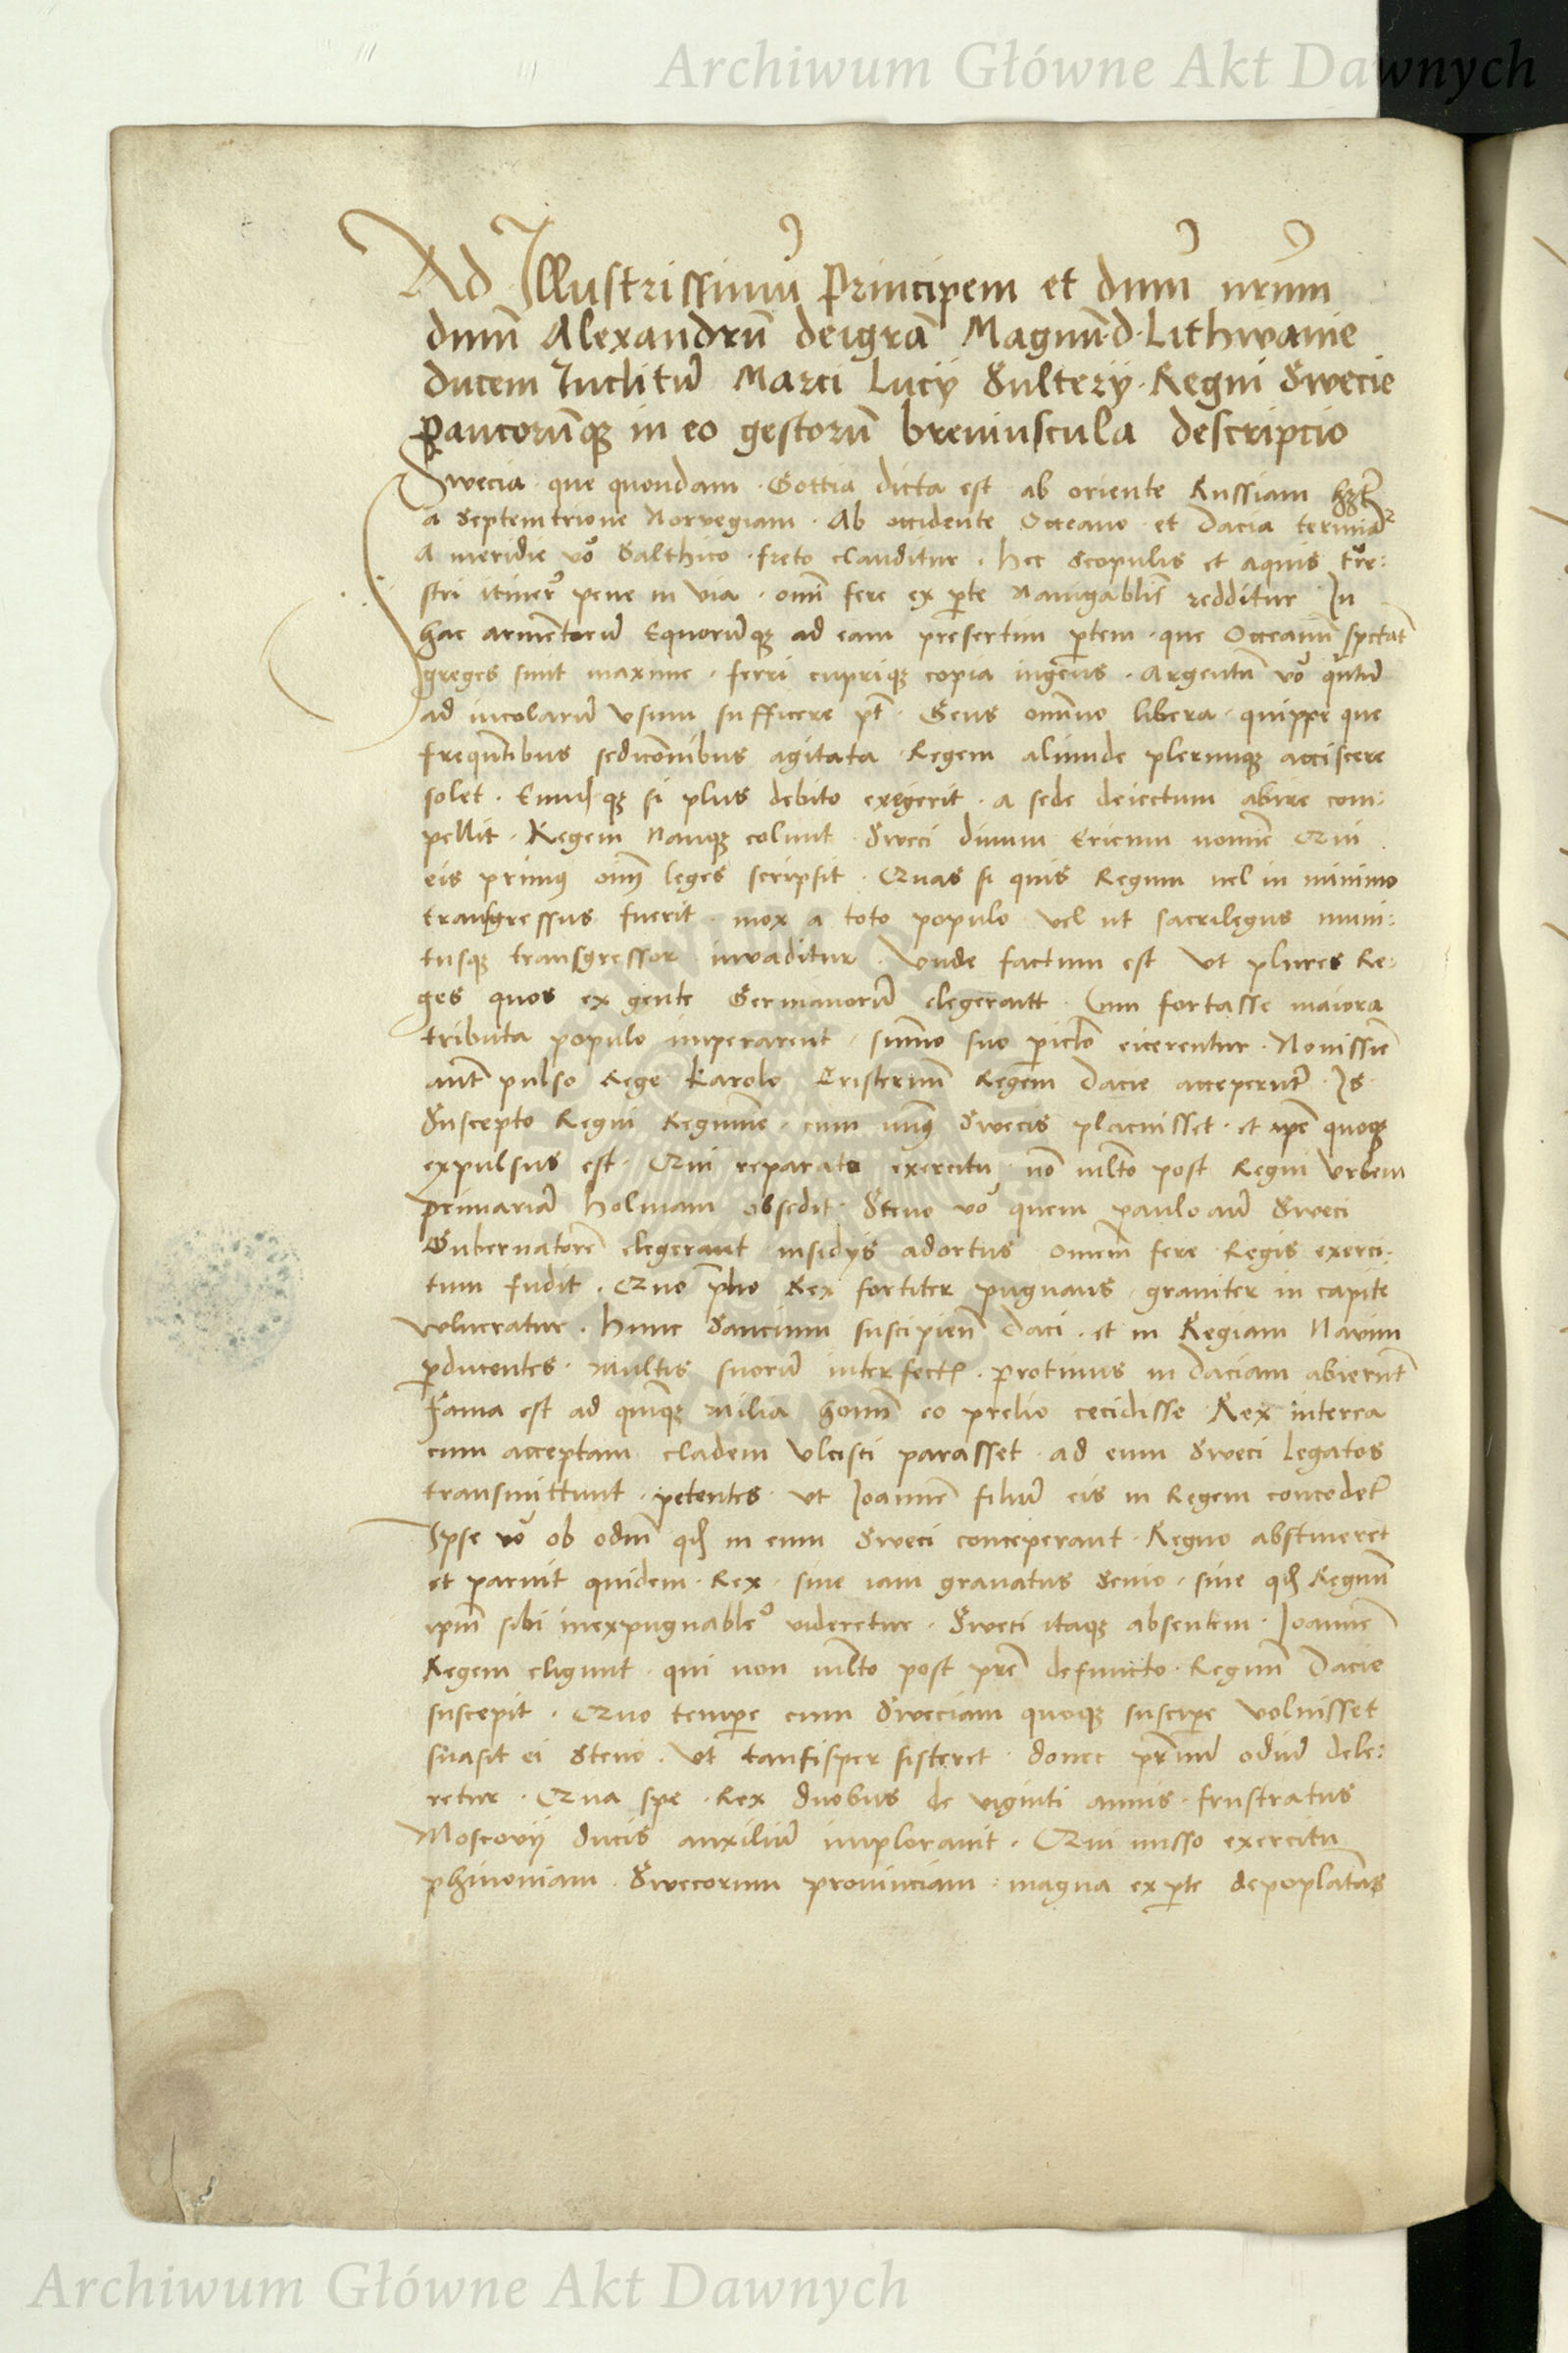 Archiwum Główne Akt Dawnych
Ad Illustrissimū Principem et dnm̄ nrm̄
dnm̄ Alexandrū deigrā Magnū·d·Lithwanie
ducem Inclitū Marci Lucÿ Sulterÿ · Regni Swecie
Paucorūq₃ in eo gestorū breviuscula descripcio
Swecia · que quondam · Gottia dicta est ab oriente Russiam
a Septemtrione Norvegiam · Ab occidente Occeano · et Dacia
A meridie vo͛ Balthico · freto clauditur · hec Scopulis et aquis
stri itiner͛ pene in via · omī fere ex ꝑte Navigablīs redditur In
hac armētorū Equorūq₃ ad eam presertim ꝑtem · que Occeanū spectāt
greges sunt maxime · ferri cupriq₃ copia ingens · Argentū vo͛ qūtū
ad incolarū vsum sufficere pt̄ · Gens omīno libera · quippe que
frequn̄tibus sedicōnibus agitata · Regem aliunde plerunq₃ acciscere
solet · Eundq₃ si plus debito exegerit · a sede deiectum abire com:
pellit · Regem Nanq₃ colunt · Sweci divum Ericum nomīe Qui
eis primus oīm leges scripsit · Quas si quis Regum vel in minimo
transgressus fuerit · mox a toto populo vel ut sacrilegus
tusq₃ transgressor invaditur · vnde factum est vt plures Re:
ges quos ex gente Germanorū elegerant · Cum fortasse maiora
tributa populo imperarent · sum̄o suo piclō eicerentur · Novissīe
aut̄ pulso Rege Karolo Cristernum Regem Dacie acceperūt · Is
Suscepto Regni Regimīe · cum Swecis placuisset · et ip̄e quoq₃
expulsus est · Qui reparato exercitu nō mlto post Regni vrbem
primariā holmam obsedit · Steno vo͛ quem paulo Sweci
Gubernatorē elegerant insidÿs adortus omnem fere Regis exerci:
tum fudit · Quo plio Rex fortiter pugnans · graviter in capite
vulneratur · hunc Saucium suscipien̄ Daci · et in Regiam Navim
ꝑducentes · multis suorū interfect · protinus in Daciam abierūt
Fama est ad quīq₃ milia homī eo prelio cecidisse Rex interea
cum acceptam cladem vlcisci parasset · ad eum Sweci Legatos
transmittunt · petentes · vt Joannē filiū eis in Regem concedet͛
Ipse vo͛ ob odiū qd in eum Sweci conceperant · Regno abstineret
et paruit quidem · Rex · sive iam gravatus Senio · sive qd Regnū
ipm̄ sibi inexpugnable͛ videretur · Sweci itaq₃ absentem · Joannē
Regem eligunt · qui non mlto post pre̅ defuncto · Regnū Dacie
suscepit · Quo tempe cum Sweciam quoq₃ suscipe voluisset
suasit ei Steno · vt tantisper sisteret · donec odiū dele:
retur · Qua spe · Rex duobus de viginti annis · frustratus
Moscovÿ ducis auxiliū imploravit · Qui misso exercitu
phinoniam · Swecorum provinciam · magna ex ꝑte depoplatas
Archiwum Główne Akt Dawnych